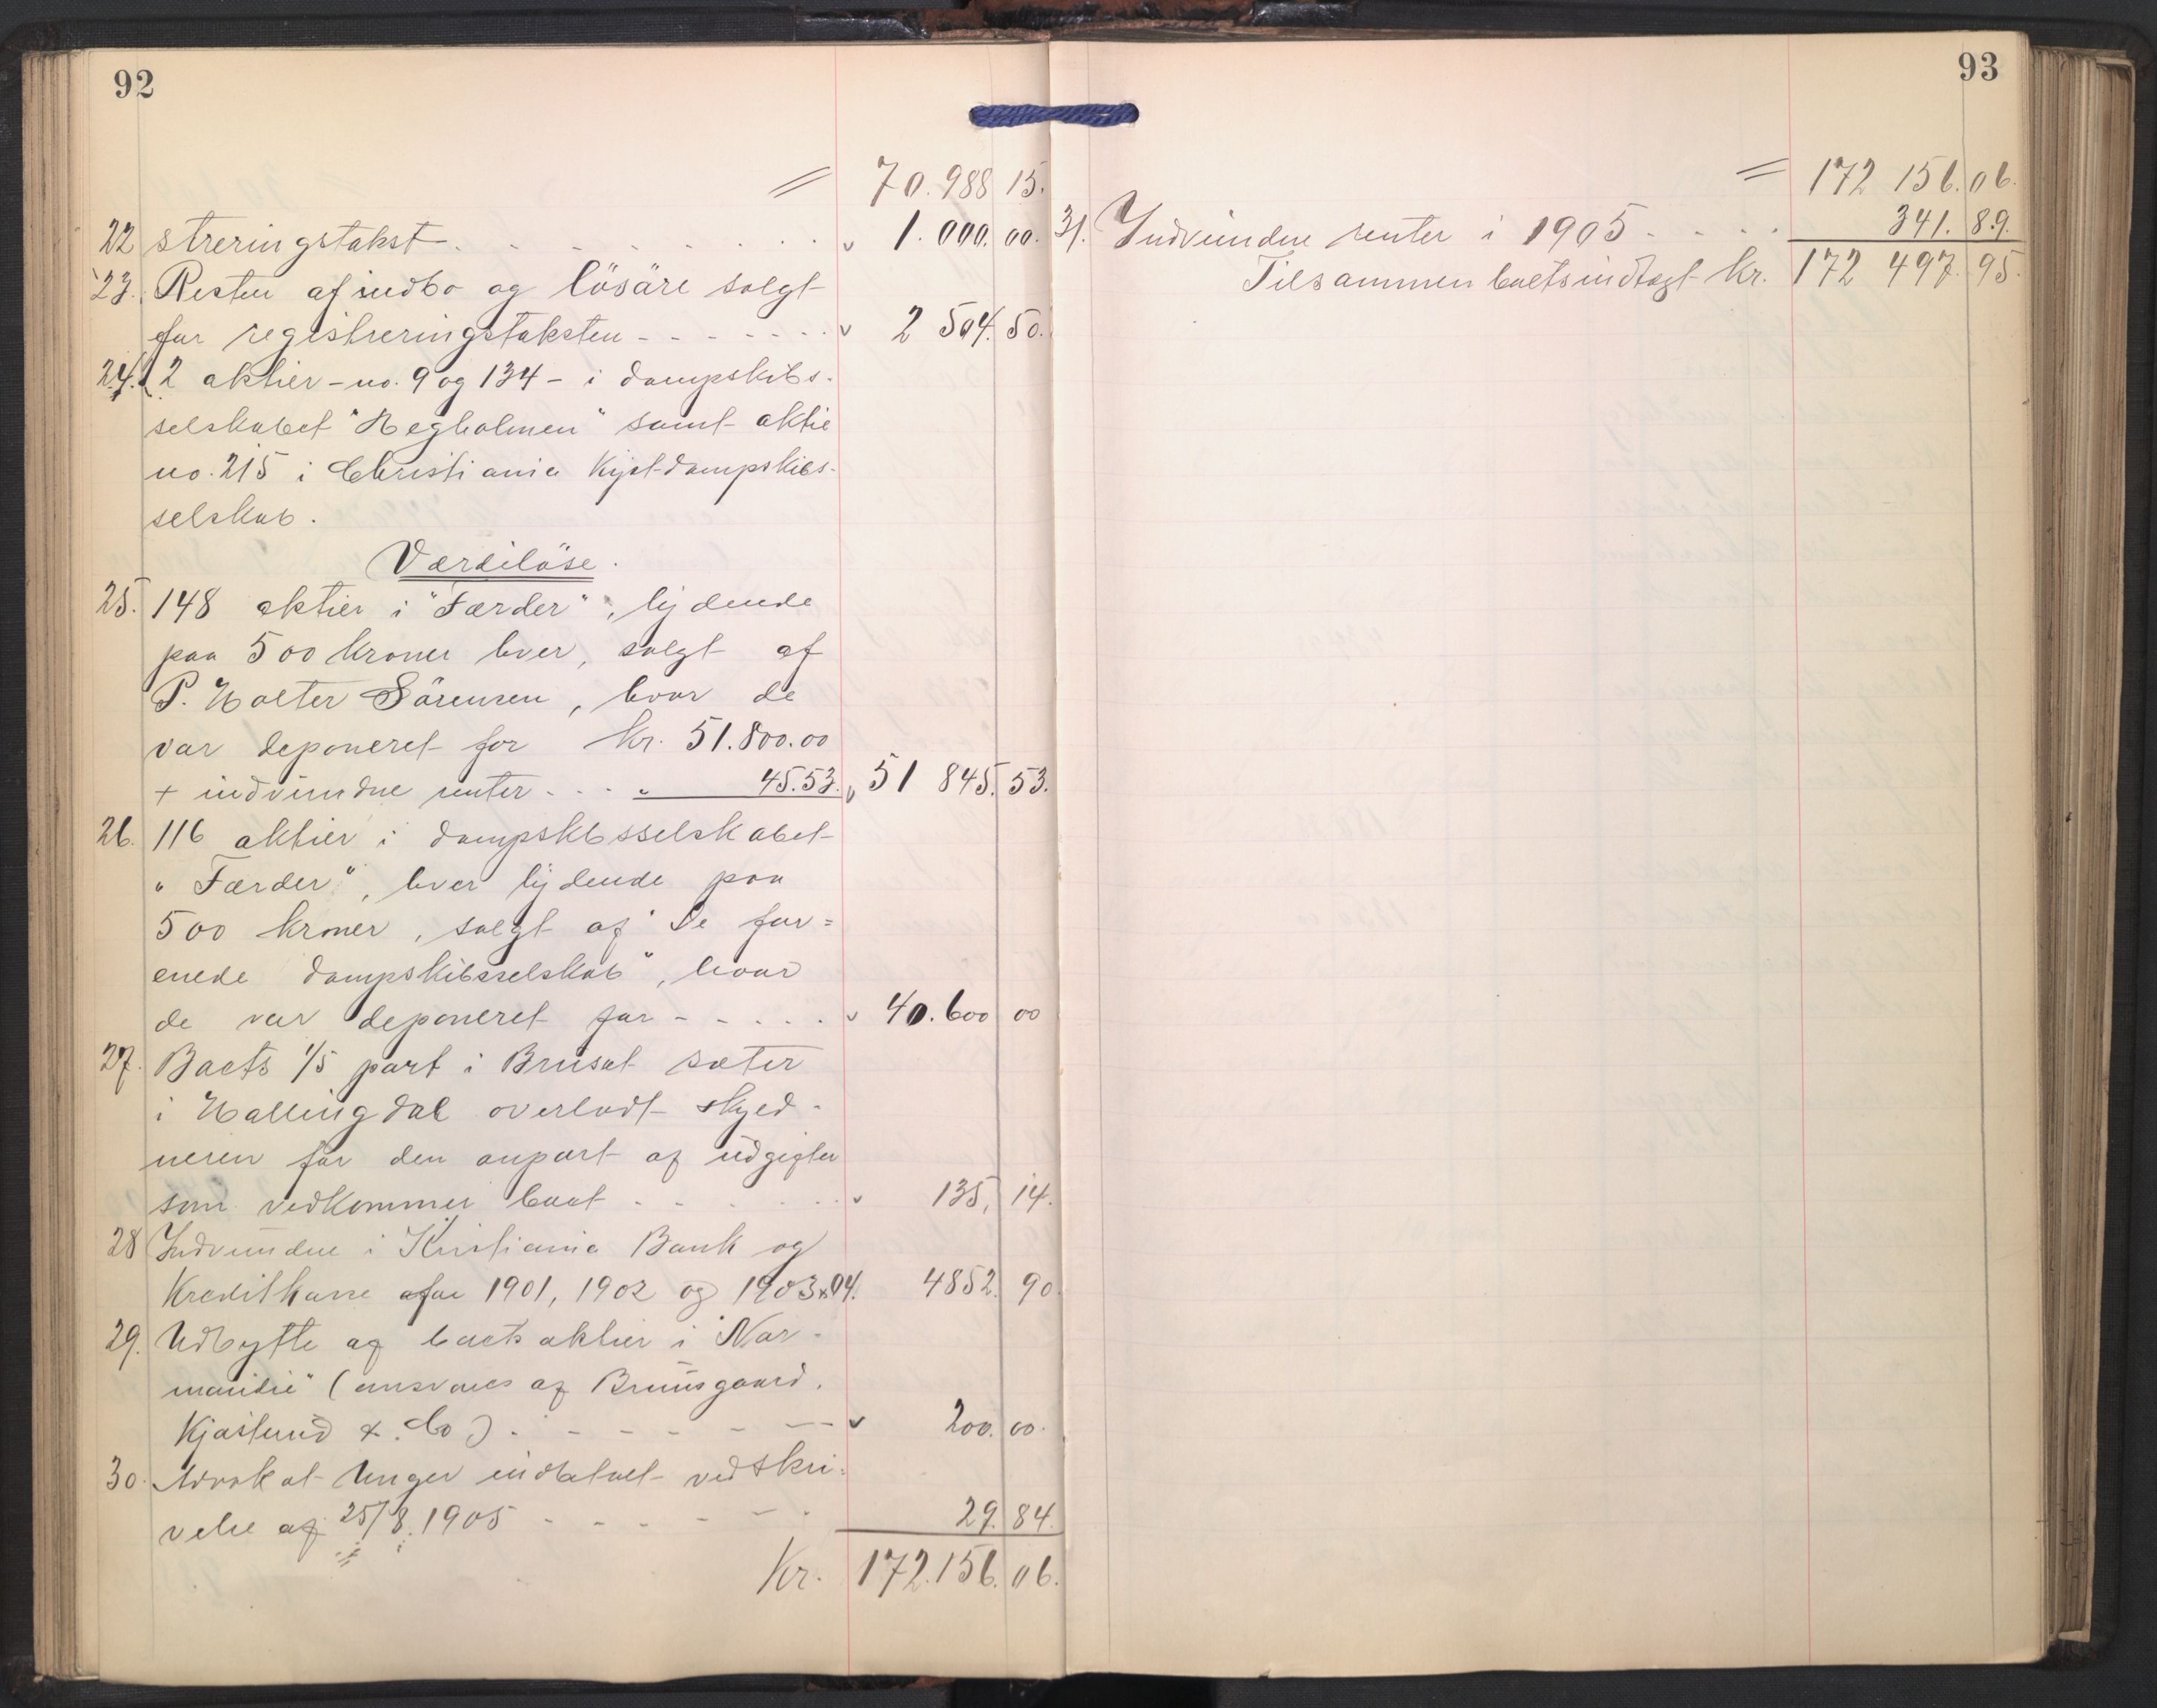 92
= 70.988 15.
22 streringstakst . . . . . . . . . v 1.000. 00.
23. Resten af indbo og lösöre solgt
for registreringstaksten - - - - - - - v 2 504. 50.
24. 2 aktier - no. 9 og 134 - i dampskibs-
selskabet "Hegholmen" samt aktie
no. 215 i Christiania Kystdampskibs-
selskab.
Værdilöse.
25. 148 aktier i "Færder", lydende
paa 500 kroner hver, solgt af
P. Holter Sörensen, hvor de
var deponeret for kr. 51.800.00
+ indvundne renter - - - " 45.53. v 51 845. 53.
26. 116 aktier i dampskbsselskabet
"Færder", hver lydende paa
500 kroner, solgt af "De for=
enede dampskibsselskab", hvor
de var deponeret for - - . . . . v 40.600 00
27. Boets 1/5 part i Brusat sæter
i Hallingdal overladt skyld-
neren for den anpart af udgifter
som vedkommer boet . - - . . . . v 135, 14.
28 Indvundne i Kristiania Bank og
Kreditkasse for 1901, 1902 og 1903 & 04. 4852. 90.
29. Udbytte af boets aktier i "Nor-
mandie" (ansvares af Bruusgaard,
Kjøsterud & Co) . - - - - - - v 200. 00.
30. Advokat Unger indbetalt ved skri-
velse af 25/8. 1905 - - - - - - . 29. 84.
Kr. 172.156. 06.
93
= 172 156. 06.
31. Indvundne renter i 1905 - - . . 341. 89.
Tilsammen boetsindtægt Kr. 172 497. 95.